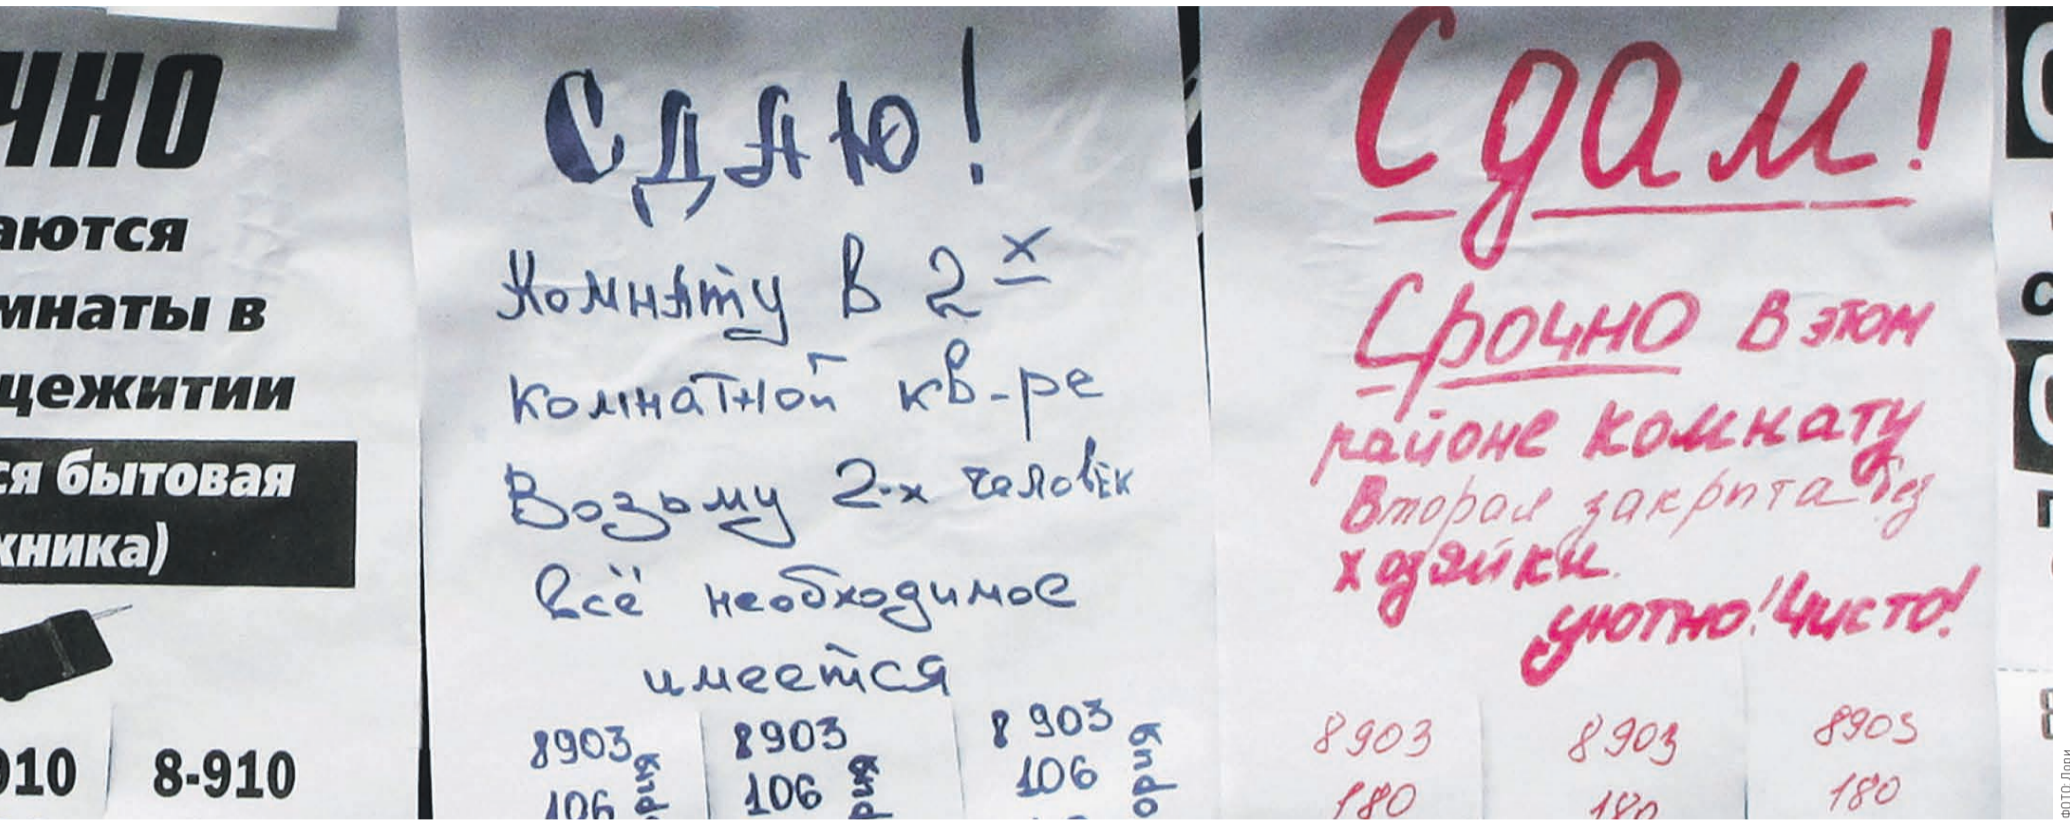 ЧНО
аются
мнаты в
щежитии
ся бытовая
хника)
910 8-910
СДАЮ!
Комнату в 2х
комнатной кв-ре
Возьму 2-х человек
всё необходимое
имеется
8903 8903 8903
106 106 106
Сдам!
Срочно в этом
районе комнату
Вторая закрпта без
хозяйки.
уютно! Чисто!
8903 8903 8903
180 180 180
ФОТО: Лори